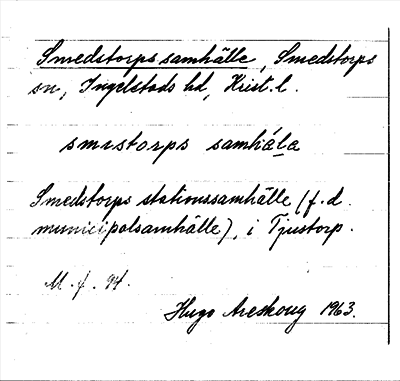 Smedstorps samhälle, Smedstorps
sn, Ingelstads hd, Krist. l.
smestorps samhála
Smedstorps stationssamhälle (f. d.
municipalsamhälle), i Tjustorp.
M. f. 94.
Hugo Areskoug 1963.